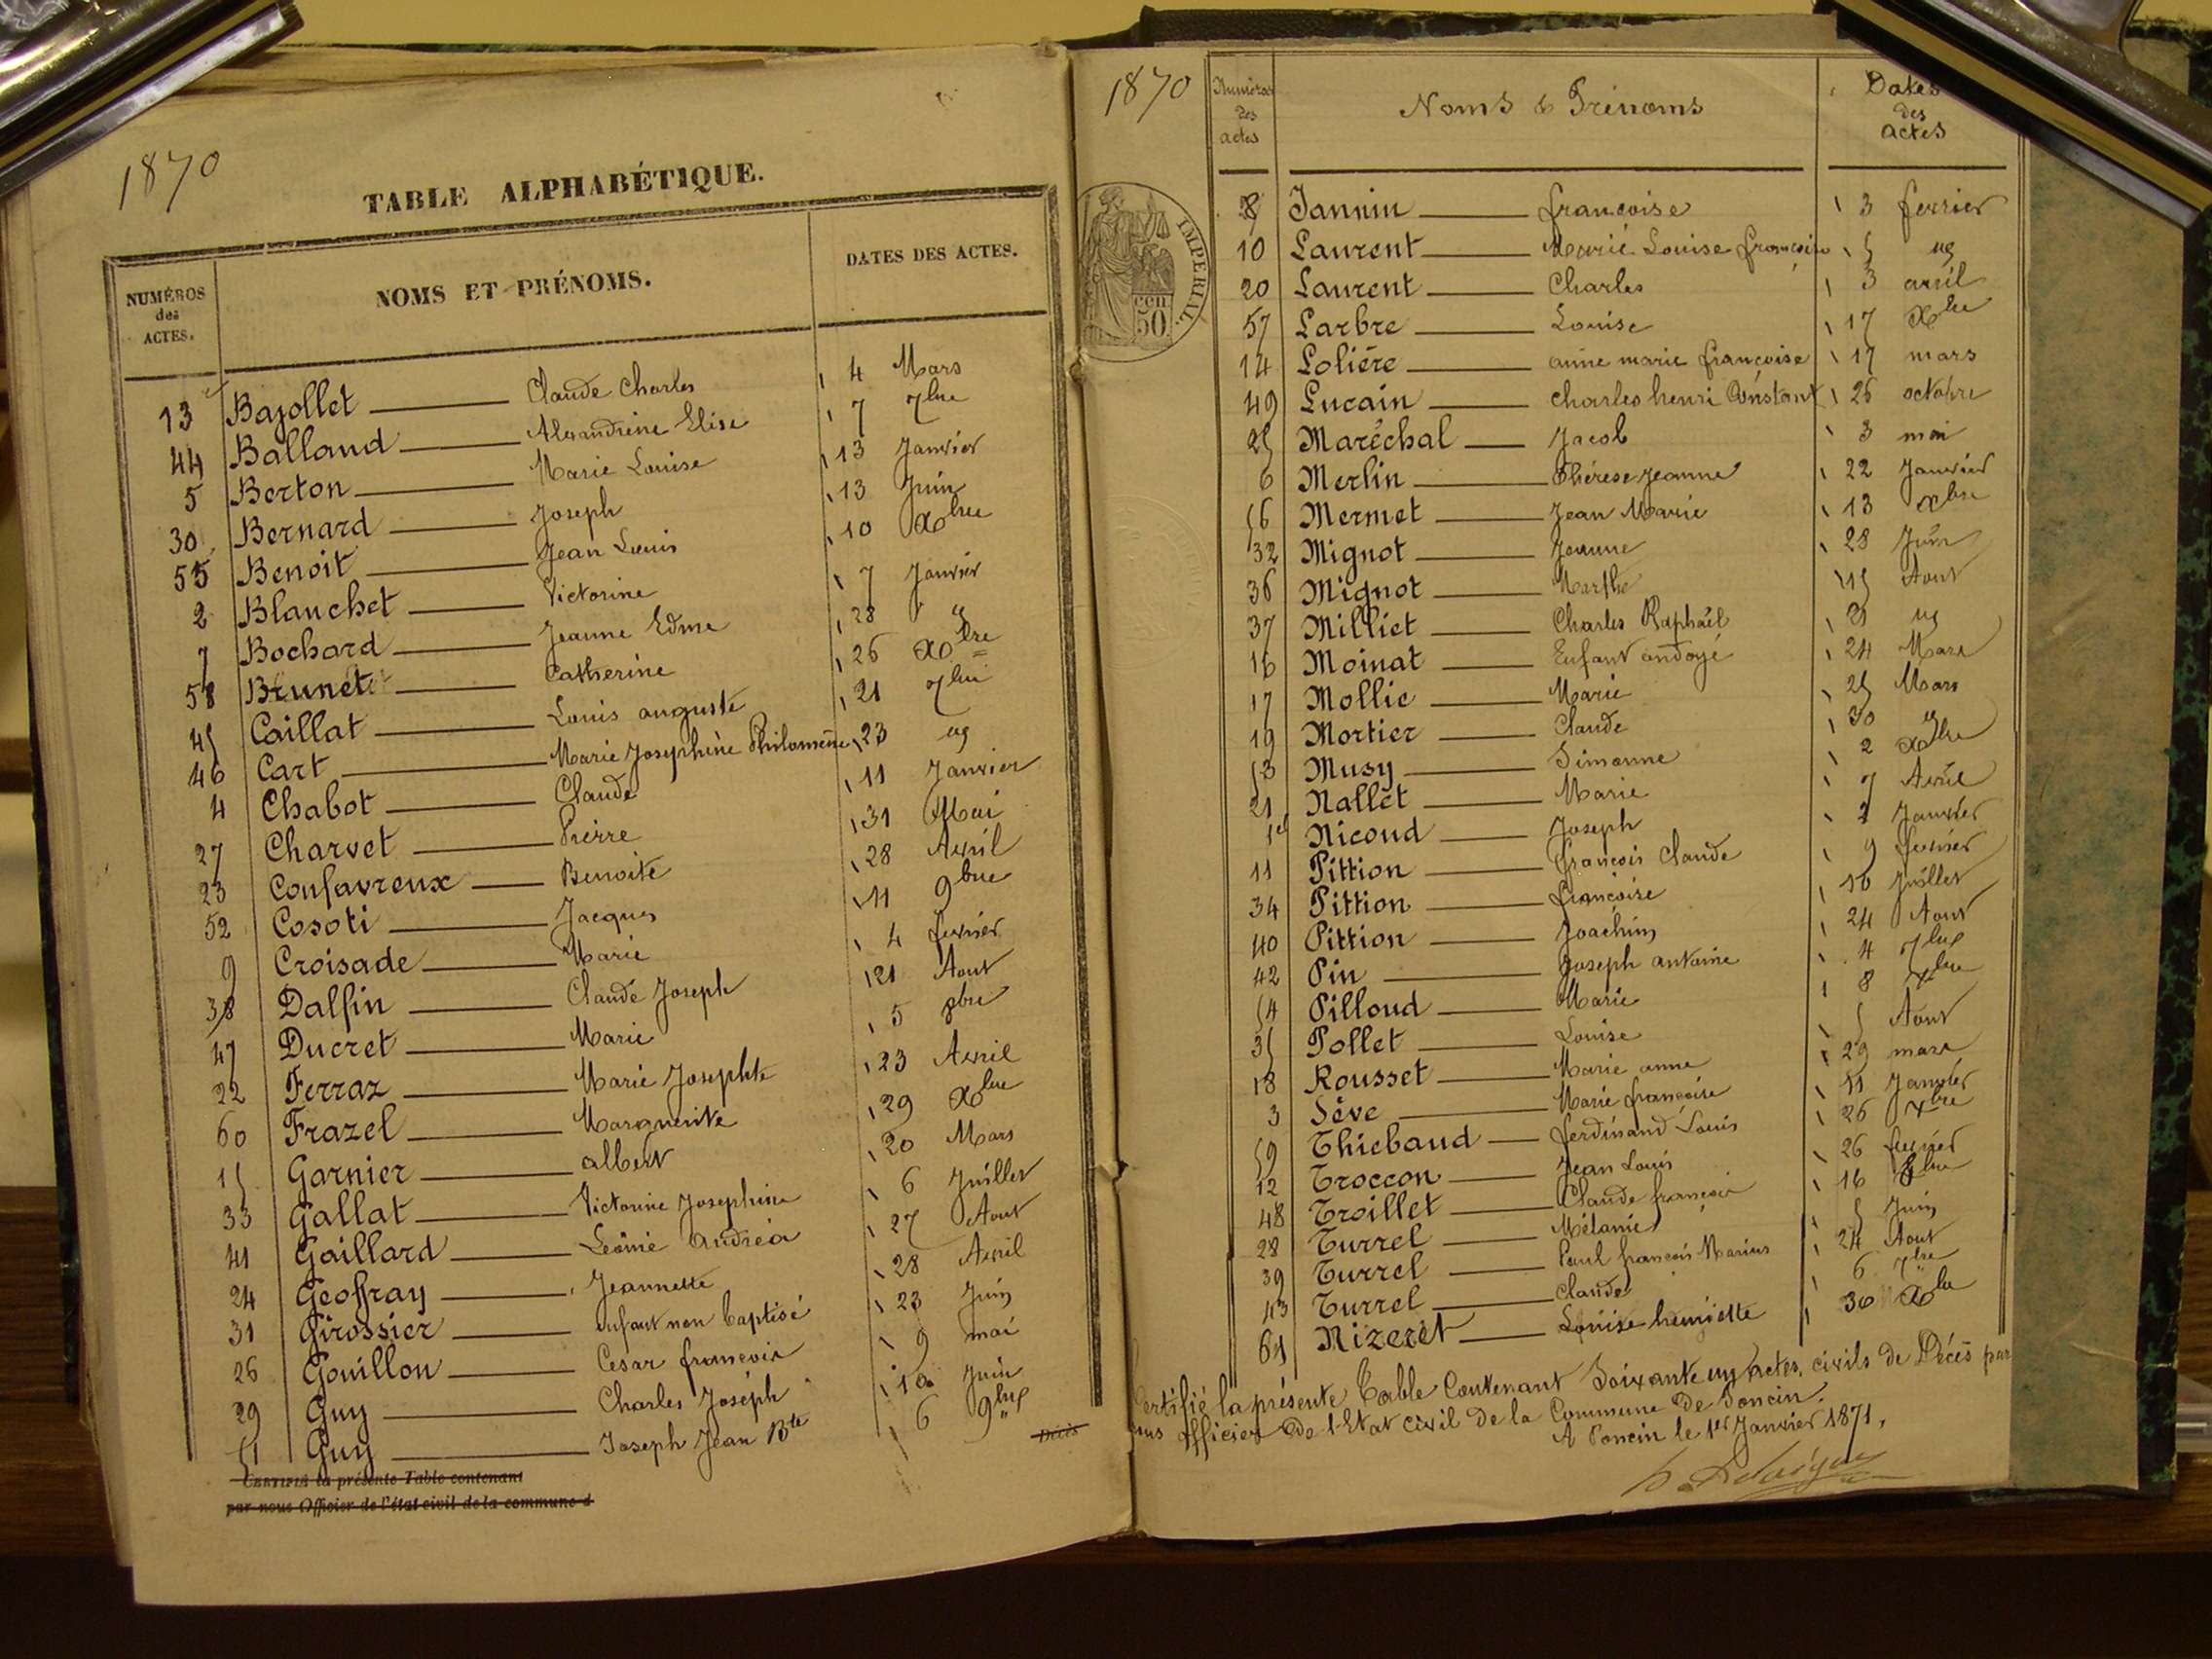 1870
TABLE ALPHABÉTIQUE.
NUMÉROS des ACTES. NOMS ET PRÉNOMS. DATES DES ACTES.
13 Bajollet Claude Charles 4 Mars
44 Balland Alexandrine Elise 7 7bre
5 Berton Marie Louise 13 Janvier
30 Bernard Joseph 13 Juin
55 Benoit Jean Louis 10 Xbre
2 Blanchet Victorine 7 Janvier
7 Bochard Jeanne Edme 28 "
58 Brunet Catherine 26 Xbre
45 Caillat Louis auguste 21 7bre
46 Cart Marie Josephine Philomène 23 "
4 Chabot Claude 11 Janvier
27 Charvet Pierre 31 Mai
23 Confavreux Benoite 28 Avril
52 Cosoti Jacques 11 9bre
9 Croisade Marie 4 fevrier
38 Dalfin Claude Joseph 21 Aout
47 Ducret Marie 5 8bre
22 Ferraz Marie Josephte 23 Avril
60 Frazel Marguerite 29 Xbre
15 Garnier albert 20 Mars
33 Gallat Victorine Josephine 6 Juillet
41 Gaillard Leonie andréa 27 Aout
24 Geoffray Jeannette 28 Avril
31 Girossier enfant non baptisé 23 Juin
26 Gouillon Cesar francois 9 mai
29 Guy Charles Joseph 10 Juin
51 Guy Joseph Jean Bte 6 9bre
Décès
CERTIFIÉ la présente Table contenant
par nous Officier de l'état civil de la commune d
1870
IMPERIAL
50 cen
Numéros des actes Noms & Prénoms Dates des actes
8 Jannin françoise 3 fevrier
10 Laurent Marie Louise françoise 5 "
20 Laurent Charles 3 avril
57 Larbre Louise 17 Xbre
14 Lolière anne marie françoise 17 mars
49 Lucain Charles henri Constant 26 octobre
25 Maréchal Jacob 3 mai
6 Merlin Thérèse Jeanne 22 Janvier
56 Mermet Jean Marie 13 Xbre
32 Mignot Jeanne 28 Juin
36 Mignot Marthe 15 Aout
37 Milliet Charles Raphaël 21 "
16 Moinat Enfant ondoyé 24 Mars
17 Mollie Marie 25 Mars
19 Mortier Claude 30 "
53 Musy Simonne 2 Xbre
21 Nallet Marie 7 Avril
1er Nicoud Joseph 2 Janvier
11 Pittion francois Claude 9 fevrier
34 Pittion françoise 10 Juillet
40 Pittion Joachim 24 Aout
42 Pin Joseph antoine 4 7bre
54 Pilloud Marie 8 Xbre
35 Pollet Louise 5 Aout
18 Rousset Marie anne 29 mars
3 Sève Marie françoise 11 Janvier
59 Thiebaud ferdinand Louis 26 Xbre
12 Troccon Jean Louis 26 fevrier
48 Troillet Claude françois 16 8bre
28 Turrel Mélanie 5 Juin
39 Turrel Paul francois Marius 24 Aout
43 Turrel Claude 6 7bre
61 Nizeret Louise henriette 30 Xbre
Certifié la présente Table Contenant Soixante un actes, civils de Décès par
nous officier de l'Etat civil de la Commune de Poncin.
A Poncin le 1er Janvier 1871.